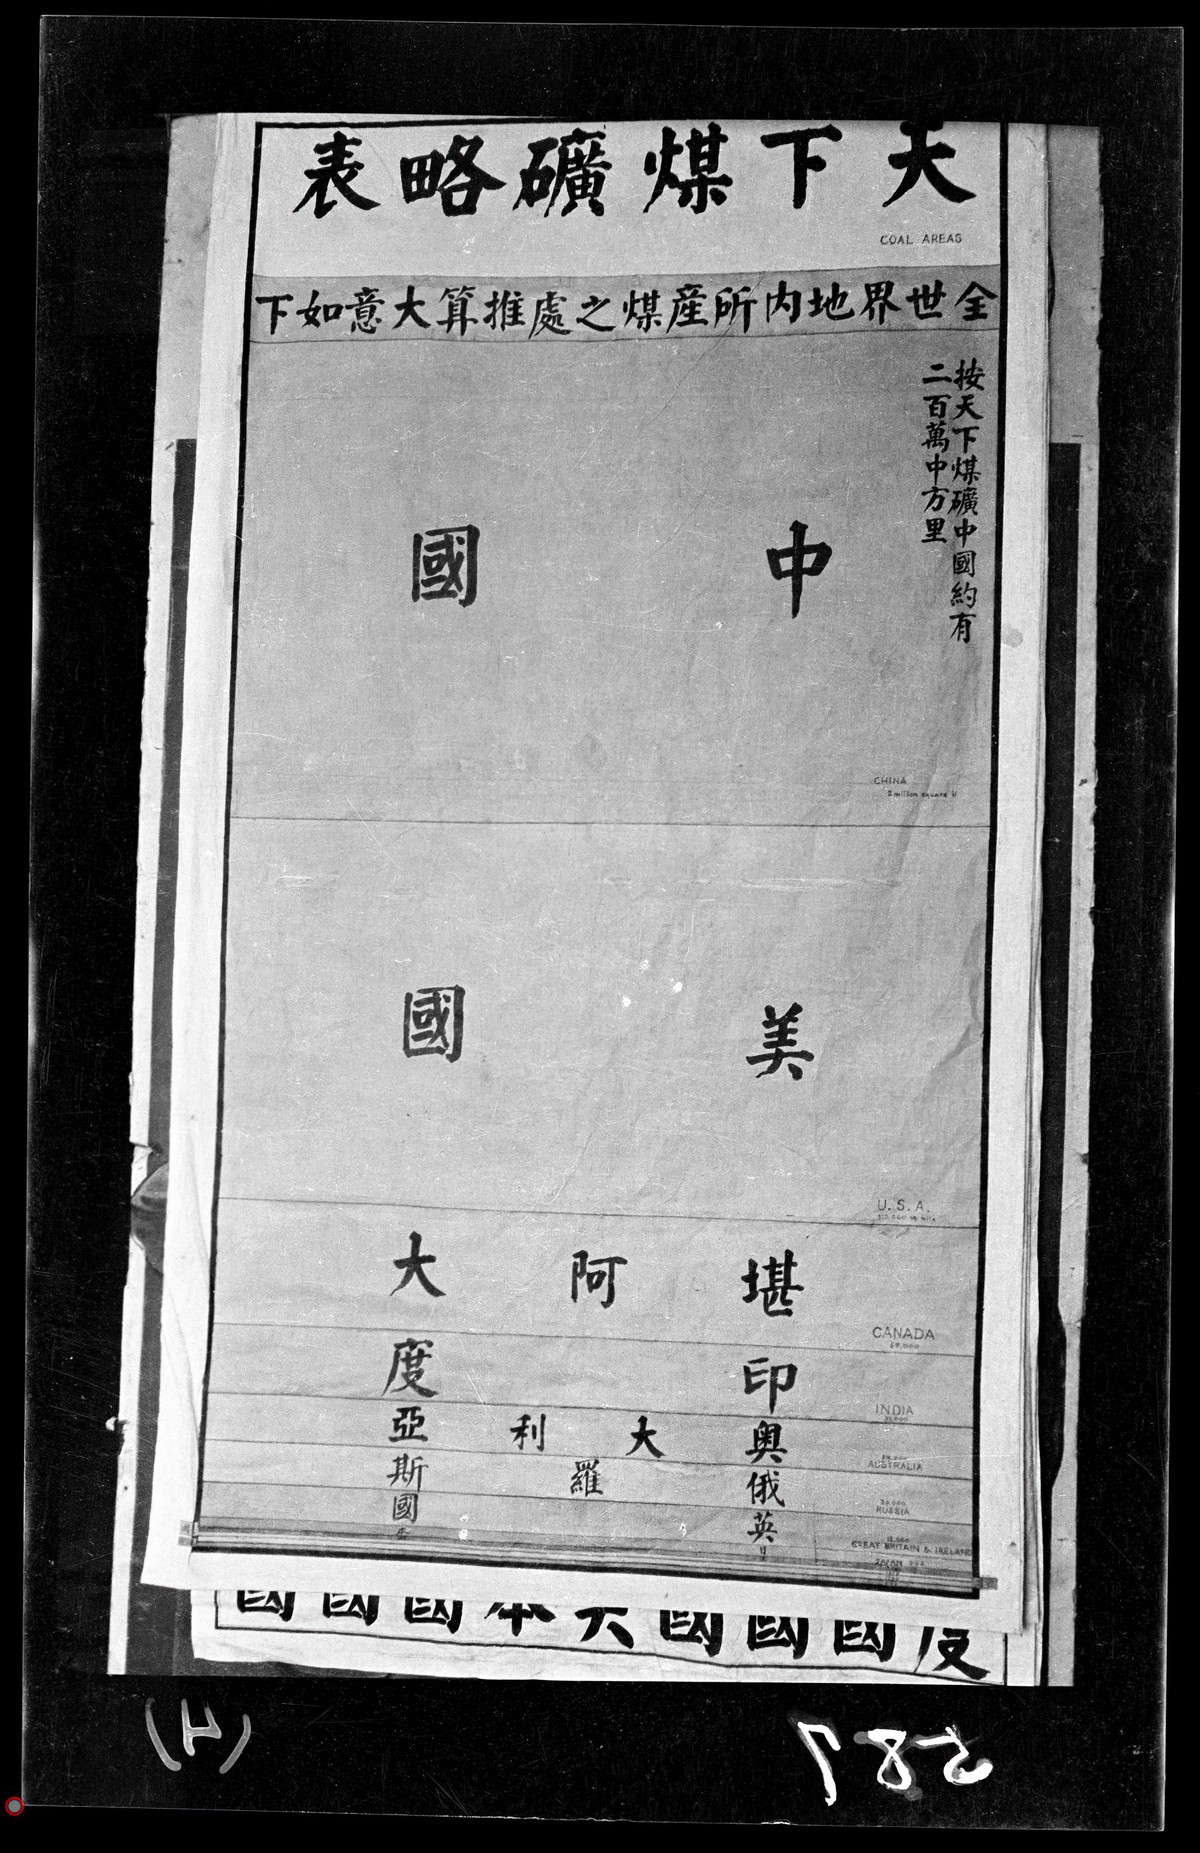 天下煤礦略表
COAL AREAS
全世界地内所產煤之處推算大意如下
按天下煤礦中國約有
二百萬中方里
中國
CHINA
2 million square li
美國
U.S.A.
堪阿大
CANADA
印度
INDIA
奥大利亞
AUSTRALIA
俄羅斯
RUSSIA
英國
GREAT BRITAIN & IRELAND
JAPAN
度國國國大本國國國
(H)
587